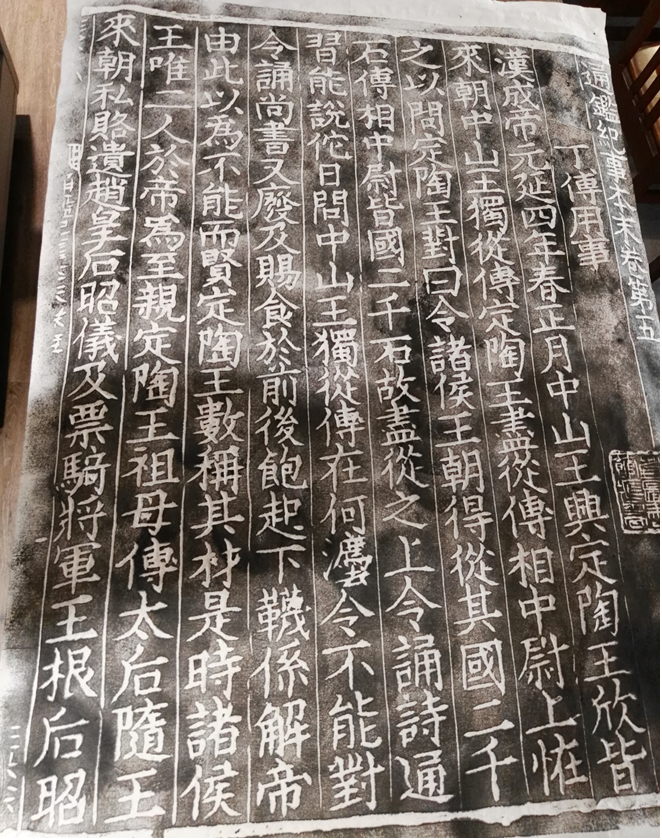 通鑑紀事本末卷第五
丁傅用事
漢成帝元延四年春正月中山王興定陶王欣皆
來朝中山王獨從傅定陶王盡從傅相中尉上恠
之以問定陶王對曰令諸侯王朝得從其國二千
石傅相中尉皆國二千石故盡從之上令誦詩通
習能說佗日問中山王獨從傅在何法令不能對
令誦尚書又廢及賜食於前後飽起下韈係解帝
由此以為不能而賢定陶王數稱其材是時諸侯
王唯二人於帝為至親定陶王祖母傅太后隨王
來朝私賂遺趙皇后昭儀及票騎將軍王根后昭